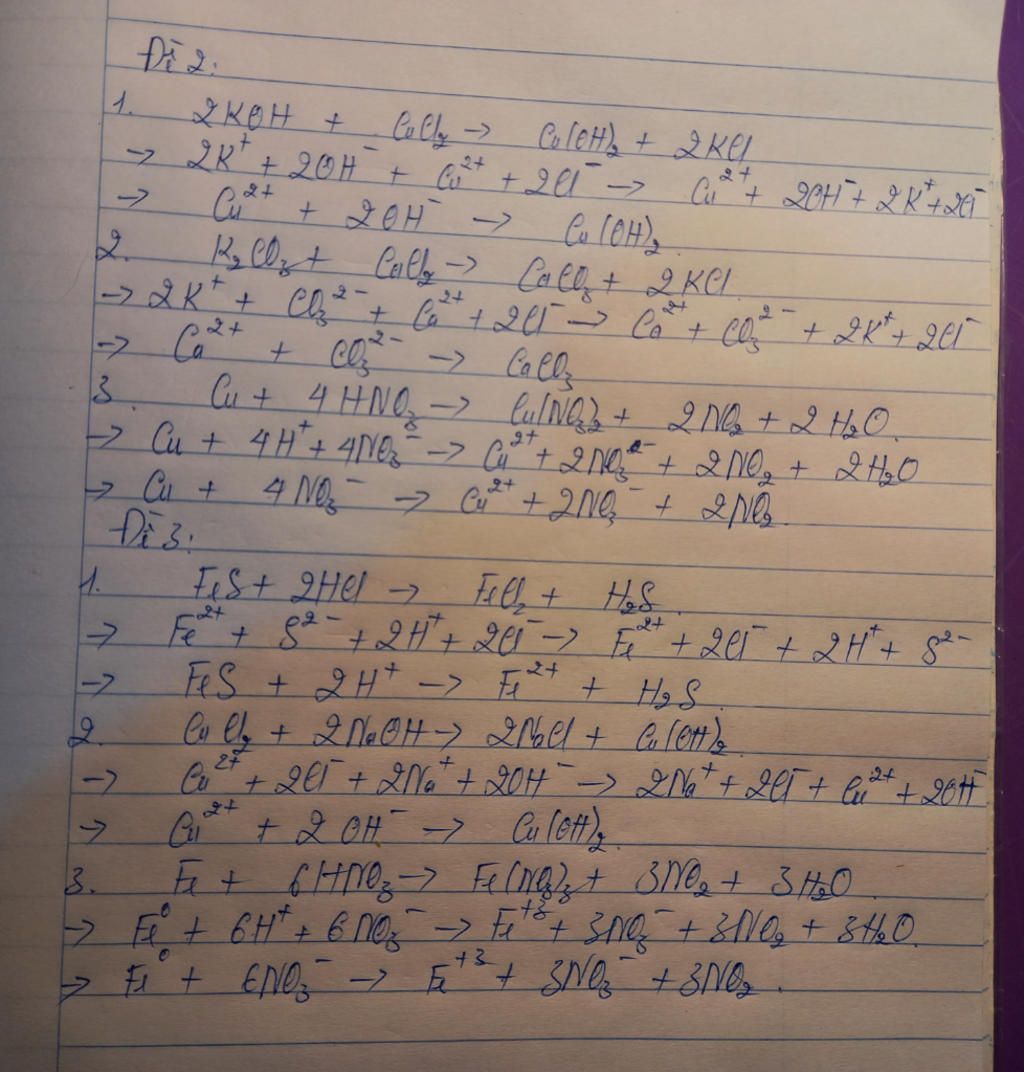 Đề 2:
1. 2KOH + CuCl₂ → Cu(OH)₂ + 2KCl
→ 2K⁺ + 2OH⁻ + Cu²⁺ + 2Cl⁻ → Cu²⁺ + 2OH⁻ + 2K⁺ + 2Cl⁻
→ Cu²⁺ + 2OH⁻ → Cu(OH)₂.
2. K₂CO₃ + CaCl₂ → CaCO₃ + 2KCl.
→ 2K⁺ + CO₃²⁻ + Ca²⁺ + 2Cl⁻ → Ca²⁺ + CO₃²⁻ + 2K⁺ + 2Cl⁻
→ Ca²⁺ + CO₃²⁻ → CaCO₃
3. Cu + 4HNO₃ → Cu(NO₃)₂ + 2NO₂ + 2H₂O.
→ Cu + 4H⁺ + 4NO₃⁻ → Cu²⁺ + 2NO₃⁻ + 2NO₂ + 2H₂O
→ Cu + 4NO₃⁻ → Cu²⁺ + 2NO₃⁻ + 2NO₂.
Đề 3:
1. FeS + 2HCl → FeCl₂ + H₂S.
→ Fe²⁺ + S²⁻ + 2H⁺ + 2Cl⁻ → Fe²⁺ + 2Cl⁻ + 2H⁺ + S²⁻
→ FeS + 2H⁺ → Fe²⁺ + H₂S.
2. CuCl₂ + 2NaOH → 2NaCl + Cu(OH)₂.
→ Cu²⁺ + 2Cl⁻ + 2Na⁺ + 2OH⁻ → 2Na⁺ + 2Cl⁻ + Cu²⁺ + 2OH⁻
→ Cu²⁺ + 2OH⁻ → Cu(OH)₂.
3. Fe + 6HNO₃ → Fe(NO₃)₃ + 3NO₂ + 3H₂O.
→ Fe⁰ + 6H⁺ + 6NO₃⁻ → Fe⁺³ + 3NO₃⁻ + 3NO₂ + 3H₂O.
→ Fe⁰ + 6NO₃⁻ → Fe⁺³ + 3NO₃⁻ + 3NO₂.